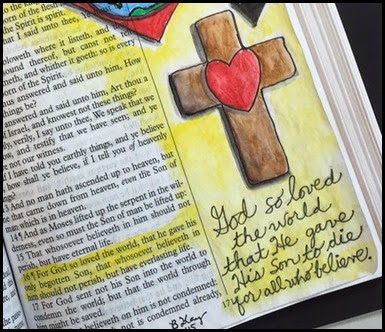 born of the flesh
the Spirit is spirit.
hat I said unto thee,
bloweth where it listeth, and
sound thereof, but canst not
cometh, and whither it goeth: so is every
orn of the Spirit.
us answered and said unto him, How
hings be?
nswered and said unto him, Art thou a
Israel, and knowest not these things?
rily, verily, I say unto thee, We speak that we
ow, and testify that we have seen; and ye
e not our witness.
f I have told you earthly things, and ye believe
how shall ye believe, if I tell you of heavenly
13 And no man hath ascended up to heaven, but
that came down from heaven, even the Son of
man which is in heaven.
14 ¶ And as Moses lifted up the serpent in the wil-
derness, even so must the Son of man be lifted up:
15 That whosoever believeth in him should not
perish, but have eternal life.
16 ¶ For God so loved the world, that he gave his
only begotten Son, that whosoever believeth in
him should not perish, but have everlasting life.
17 For God sent not his Son into the world to
condemn the world; but that the world through
him might be saved.
believeth on him is not condemned:
not is condemned already,
God so loved
the world
that He gave
His Son to die
for all who believe.